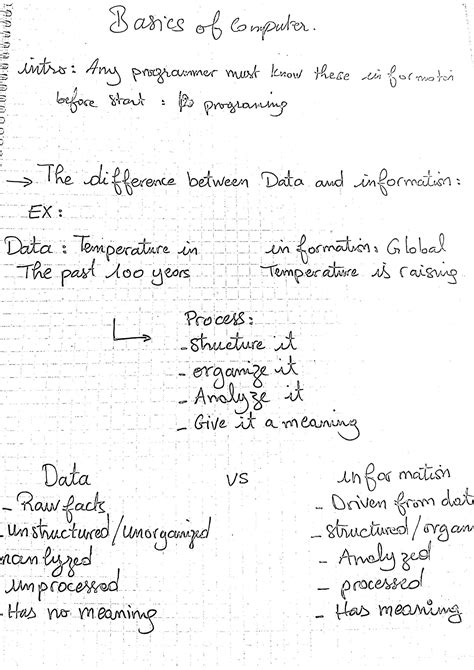 Basics of Computer.
intro: Any programmer must know these information
before start: programing
→ The difference between Data and information:
EX:
Data: Temperature in The past 100 years
information: Global Temperature is raising
Process:
- structure it
- organize it
- Analyze it
- Give it a meaning
Data vs information
- Raw facts
- unstructured/unorganized
unanlyzed
unprocessed
- Has no meaning
- Driven from dat
- structured/organ
- Analyzed
- processed
- Has meaning